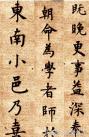 既晚更事益深奉
朝命為學者師於
東南小邑乃喜